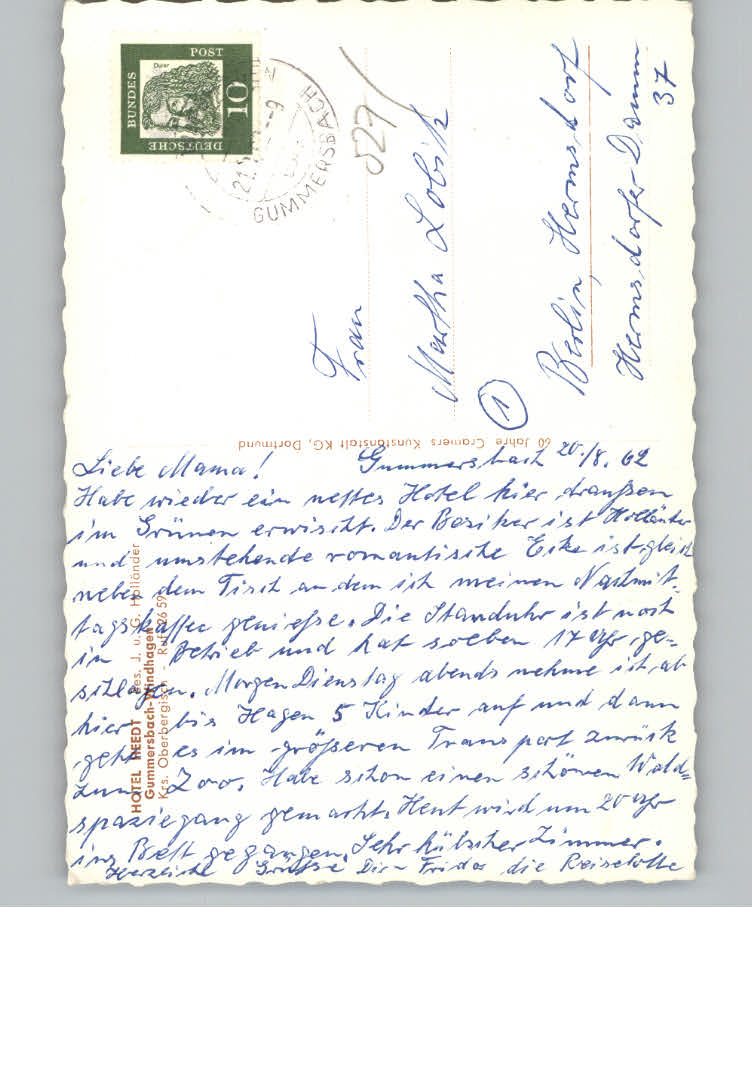 DEUTSCHE
BUNDES
POST
10
Dürer
21.
-9
GUMMERSBACH
527/
Frau
Martha Lobitz
1
Berlin, Hermsdorf
Hermsdorfer-Damm
37
60 Jahre Cramers Kunstanstalt KG, Dortmund
HOTEL HEEDT Bes. J. u. G. Holländer
Gummersbach-Windhagen
Krs. Oberbergisch - Ruf 26 59
Liebe Mama! Gummersbach 20./8. 62
Habe wieder ein nettes Hotel hier draußen
im Grünen erwischt. Der Besitzer ist Holländer
und umstehende romantische Ecke ist gleich
neben dem Tisch an dem ich meinen Nachmit-
tagskaffee genieße. Die Standuhr ist noch
in Betrieb und hat soeben 17 Uhr ge-
schlagen. Morgen Dienstag abends nehme ich ab
hier bis Hagen 5 Kinder auf und dann
geht es im größeren Transport zurück
zum Zoo. Habe schon einen schönen Wald-
spaziegang gemacht. Heut wird um 20 Uhr
ins Bett gegangen. Sehr hübscher Zimmer.
Herzliche Grüsse Dir - die Reiselotte